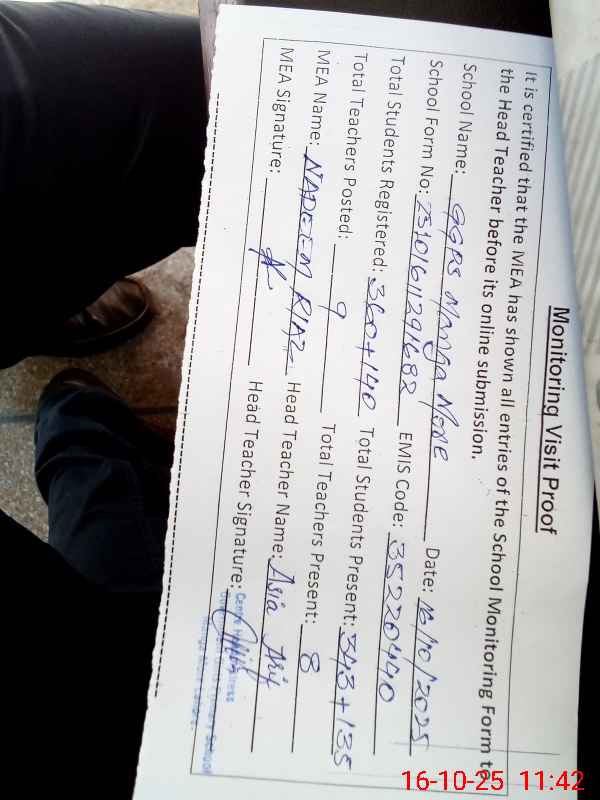 Monitoring Visit Proof
It is certified that the MEA has shown all entries of the School Monitoring Form to
the Head Teacher before its online submission.
School Name: GGPS Manga Mone Date: 16/10/2025
School Form No: 2510161129168 EMIS Code: 35220440
Total Students Registered: 360+140 Total Students Present: 343+135
Total Teachers Posted: 9 Total Teachers Present: 8
MEA Name: NADEEM RIAZ Head Teacher Name: Asia Arif
MEA Signature: Head Teacher Signature:
Centre Headmistress
Primary School
16-10-25 11:42